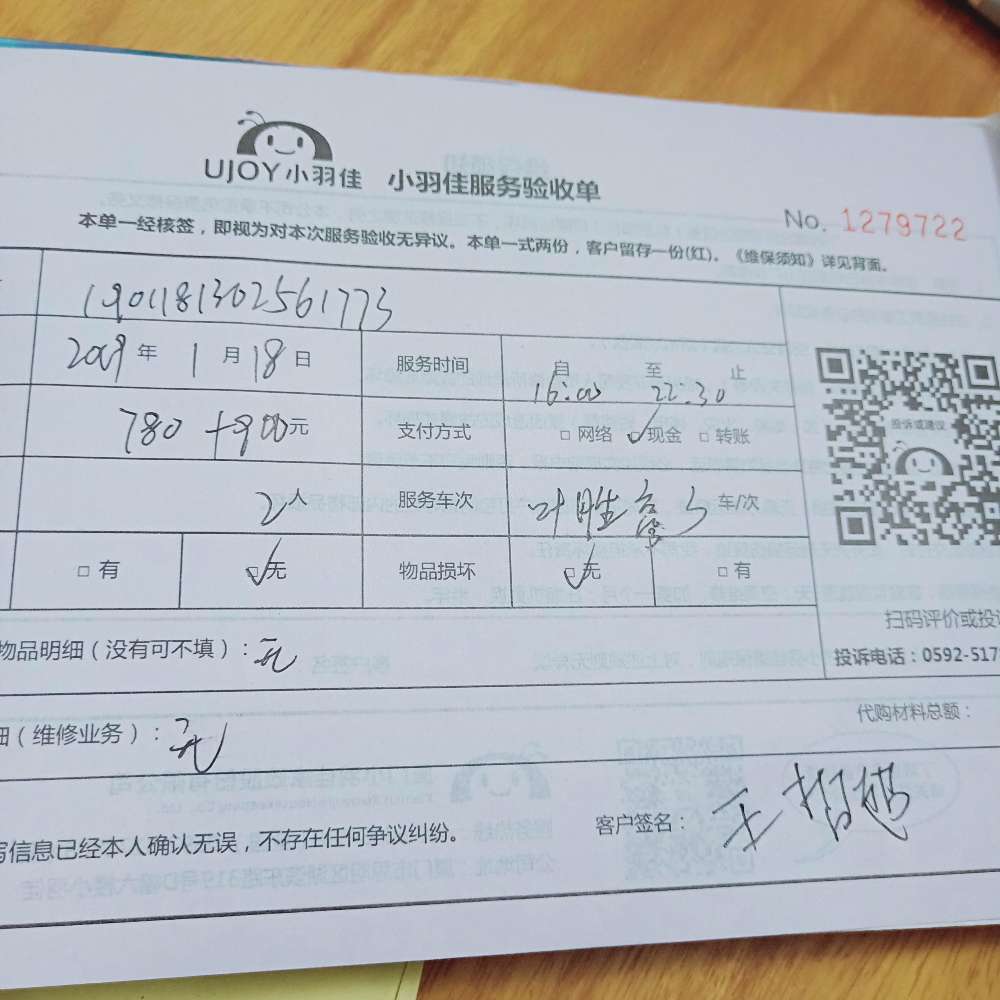 UJOY小羽佳 小羽佳服务验收单
No. 1279722
本单一经核签，即视为对本次服务验收无异议。本单一式两份，客户留存一份(红)。《维保须知》详见背面。
1901181302561773
2019年 1月18日 服务时间 自16:00 至22:30 止
780+900元 支付方式 □网络 ☑现金 □转账
投诉或建议
2人 服务车次 车/次
□有 ☑无 物品损坏 ☑无 □有
扫码评价或投
物品明细（没有可不填）：无
投诉电话：0592-517
细（维修业务）：无
代购材料总额：
写信息已经本人确认无误，不存在任何争议纠纷。 客户签名：